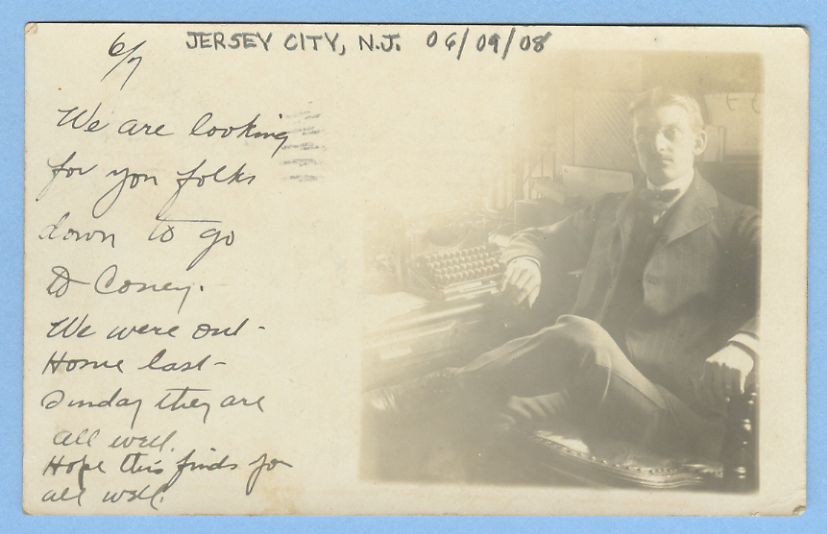 JERSEY CITY, N.J. 06/09/08
6/7
We are looking
for you folks
down to go
to Coney.
We were out-
Home last-
Sunday they are
all well.
Hope this finds yo
all well.